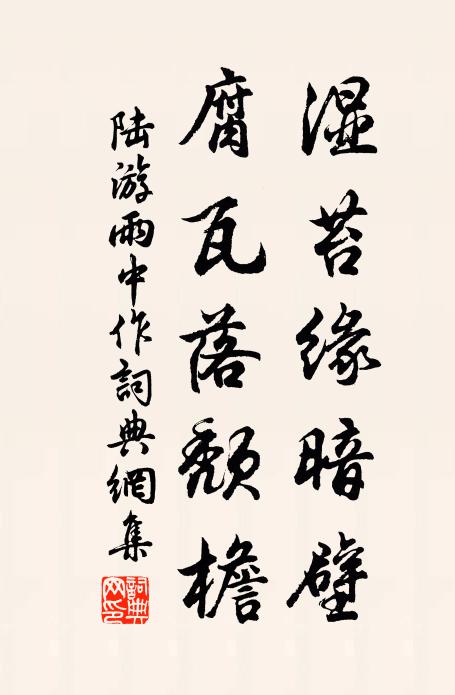 湿苔缘暗壁
腐瓦落颓檐
陆游雨中作词典網集
詞典网印